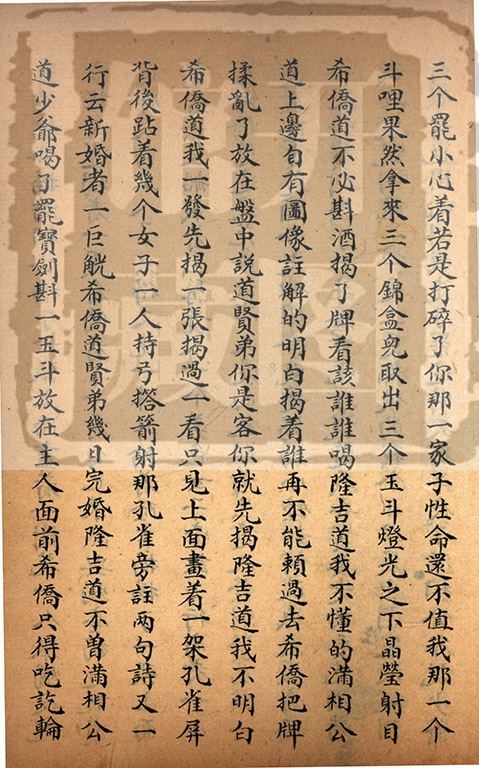 三个罷小心着若是打碎了你那一家子性命還不值我那一个
斗哩果然拿來三个錦盒兒取出三个玉斗燈光之下晶瑩射目
希僑道不必斟酒揭了牌看該誰誰喝隆吉道我不懂的滿相公
道上邊自有圖像註解的明白揭着誰再不能賴過去希僑把牌
揉亂了放在盤中説道賢弟你是客你就先揭隆吉道我不明白
希僑道我一發先揭一張揭過一看只見上面畫着一架孔雀屏
背後跕着幾个女子一人持弓搭箭射那孔雀旁註两句詩又一
行云新婚者一巨觥希僑道賢弟幾日完婚隆吉道不曾滿相公
道少爺喝了罷寶劍斟一玉斗放在主人面前希僑只得吃訖輪